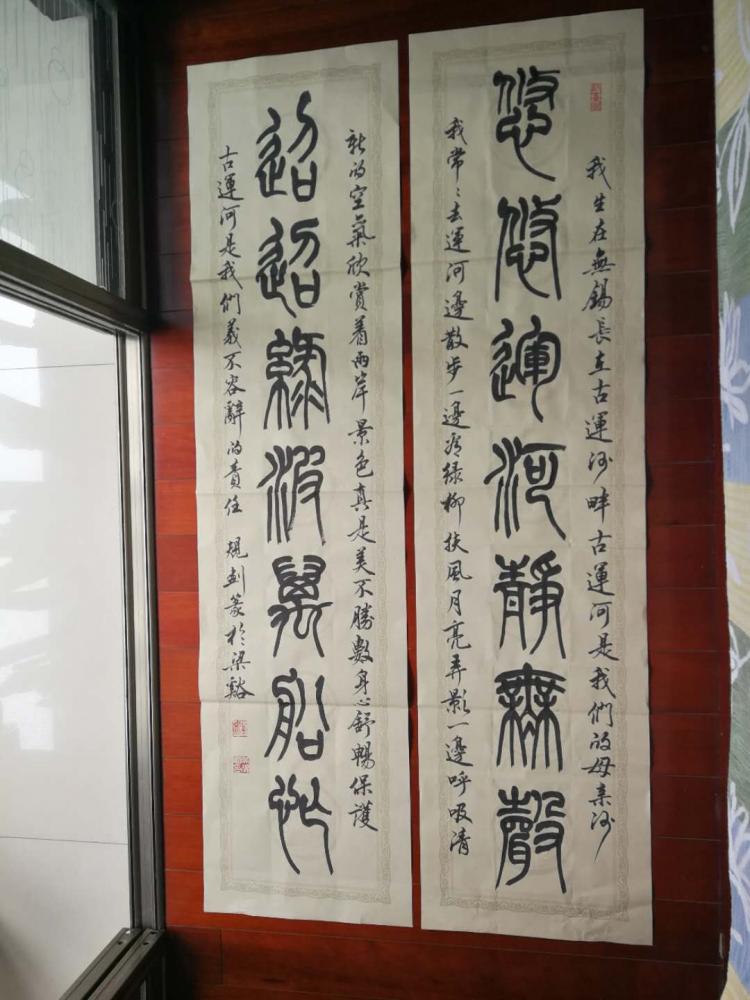 我生在無錫長在古運河畔古運河是我們的母亲河
悠悠運河靜無聲
我常々去運河邊散步一邊看綠柳扶風月亮弄影一邊呼吸清
新的空氣欣賞着兩岸景色真是美不勝數身心舒暢保護
迢迢綠波萬船
古運河是我們義不容辭的責任 篆於梁谿